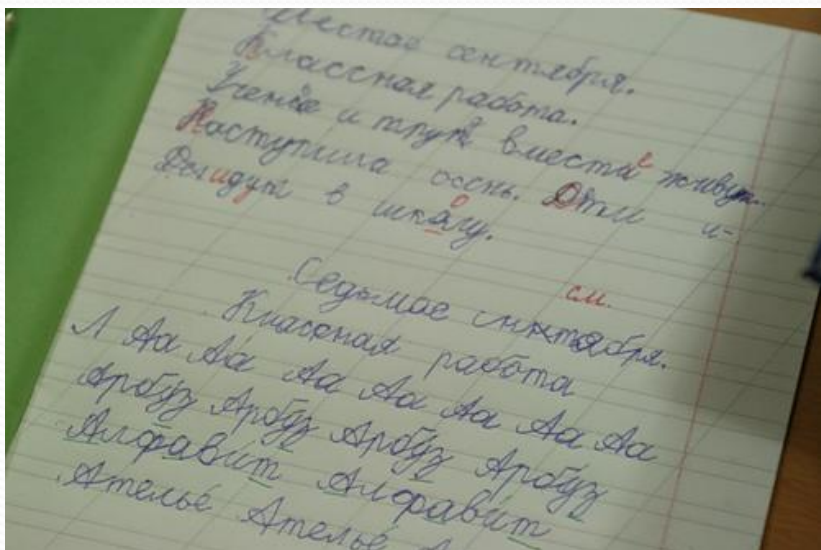 Шестое сентября.
Классная работа.
Ученье и труд вместе живут.
Наступила осень. Дти и-
идут в школу.
см.
Седьмое снктября.
Класная работа
Л Аа Аа Аа Аа Аа Аа Аа
Арбуз Арбуз Арбуз Арбуз
Алфавит Алфавит
Ателье Ателье